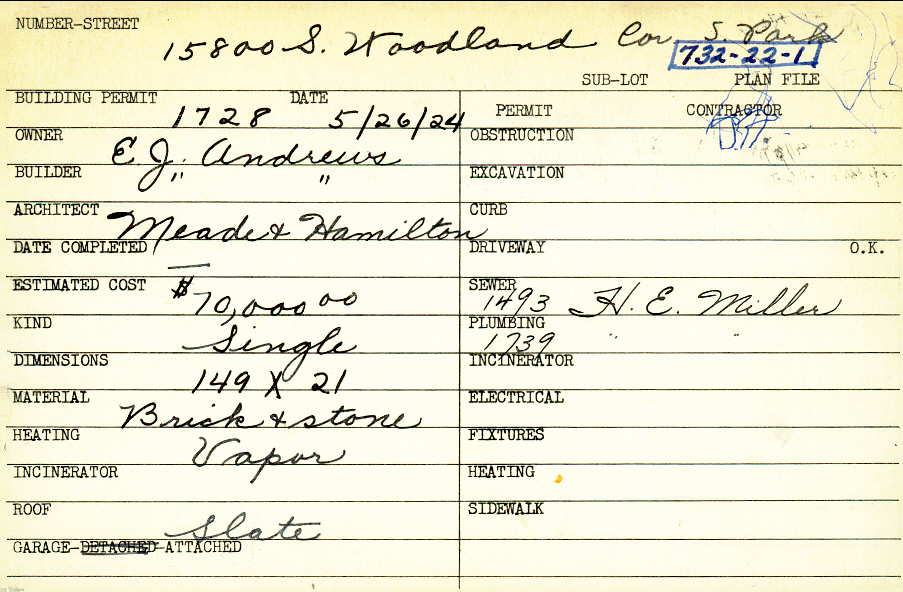 NUMBER-STREET
15800 S. Woodland Cor S. Park
732-22-1
SUB-LOT PLAN FILE
BUILDING PERMIT 1728 DATE 5/26/24
PERMIT CONTRACTOR
OWNER E. J. Andrews
OBSTRUCTION
BUILDER " "
EXCAVATION
ARCHITECT Meade & Hamilton
CURB
DATE COMPLETED —
DRIVEWAY O.K.
ESTIMATED COST $70,000 00
SEWER 1493 H. E. Miller
KIND Single
PLUMBING 1739 " "
DIMENSIONS 149 X 21
INCINERATOR
MATERIAL Brick & stone
ELECTRICAL
HEATING Vapor
FIXTURES
INCINERATOR
HEATING
ROOF Slate
SIDEWALK
GARAGE-DETACHED-ATTACHED